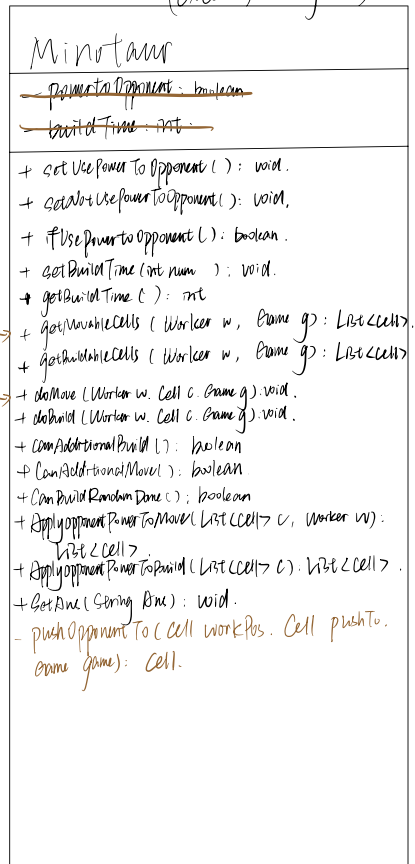 Minotaur
- powertoOpponent : boolean
- buildTime : int
+ setUsePowerToOpponent ( ) : void.
+ setNotUsePowerToOpponent( ) : void.
+ ifUsePowertoOpponent ( ) : boolean.
+ setBuildTime (int num ) : void.
+ getBuildTime ( ) : int
+ getMovableCells ( Worker w, Game g) : List<Cell>.
+ getBuildableCells ( Worker w, Game g) : List<Cell>
+ doMove (Worker w. Cell c. Game g) : void.
+ doBuild (Worker w. Cell c. Game g) : void.
+ canAdditionalBuild ( ) : boolean
+ CanAdditionalMove ( ) : boolean.
+ CanBuildRandomDome ( ) ; boolean
+ ApplyopponentPowerToMove (List<Cell> c, Worker w) :
List<cell>.
+ ApplyopponentPowerToBuild (List<Cell> c) . List<cell>.
+ Set
(String
) : void.
- pushOpponentTo ( Cell workPos. Cell pushTo.
Game game) : Cell.